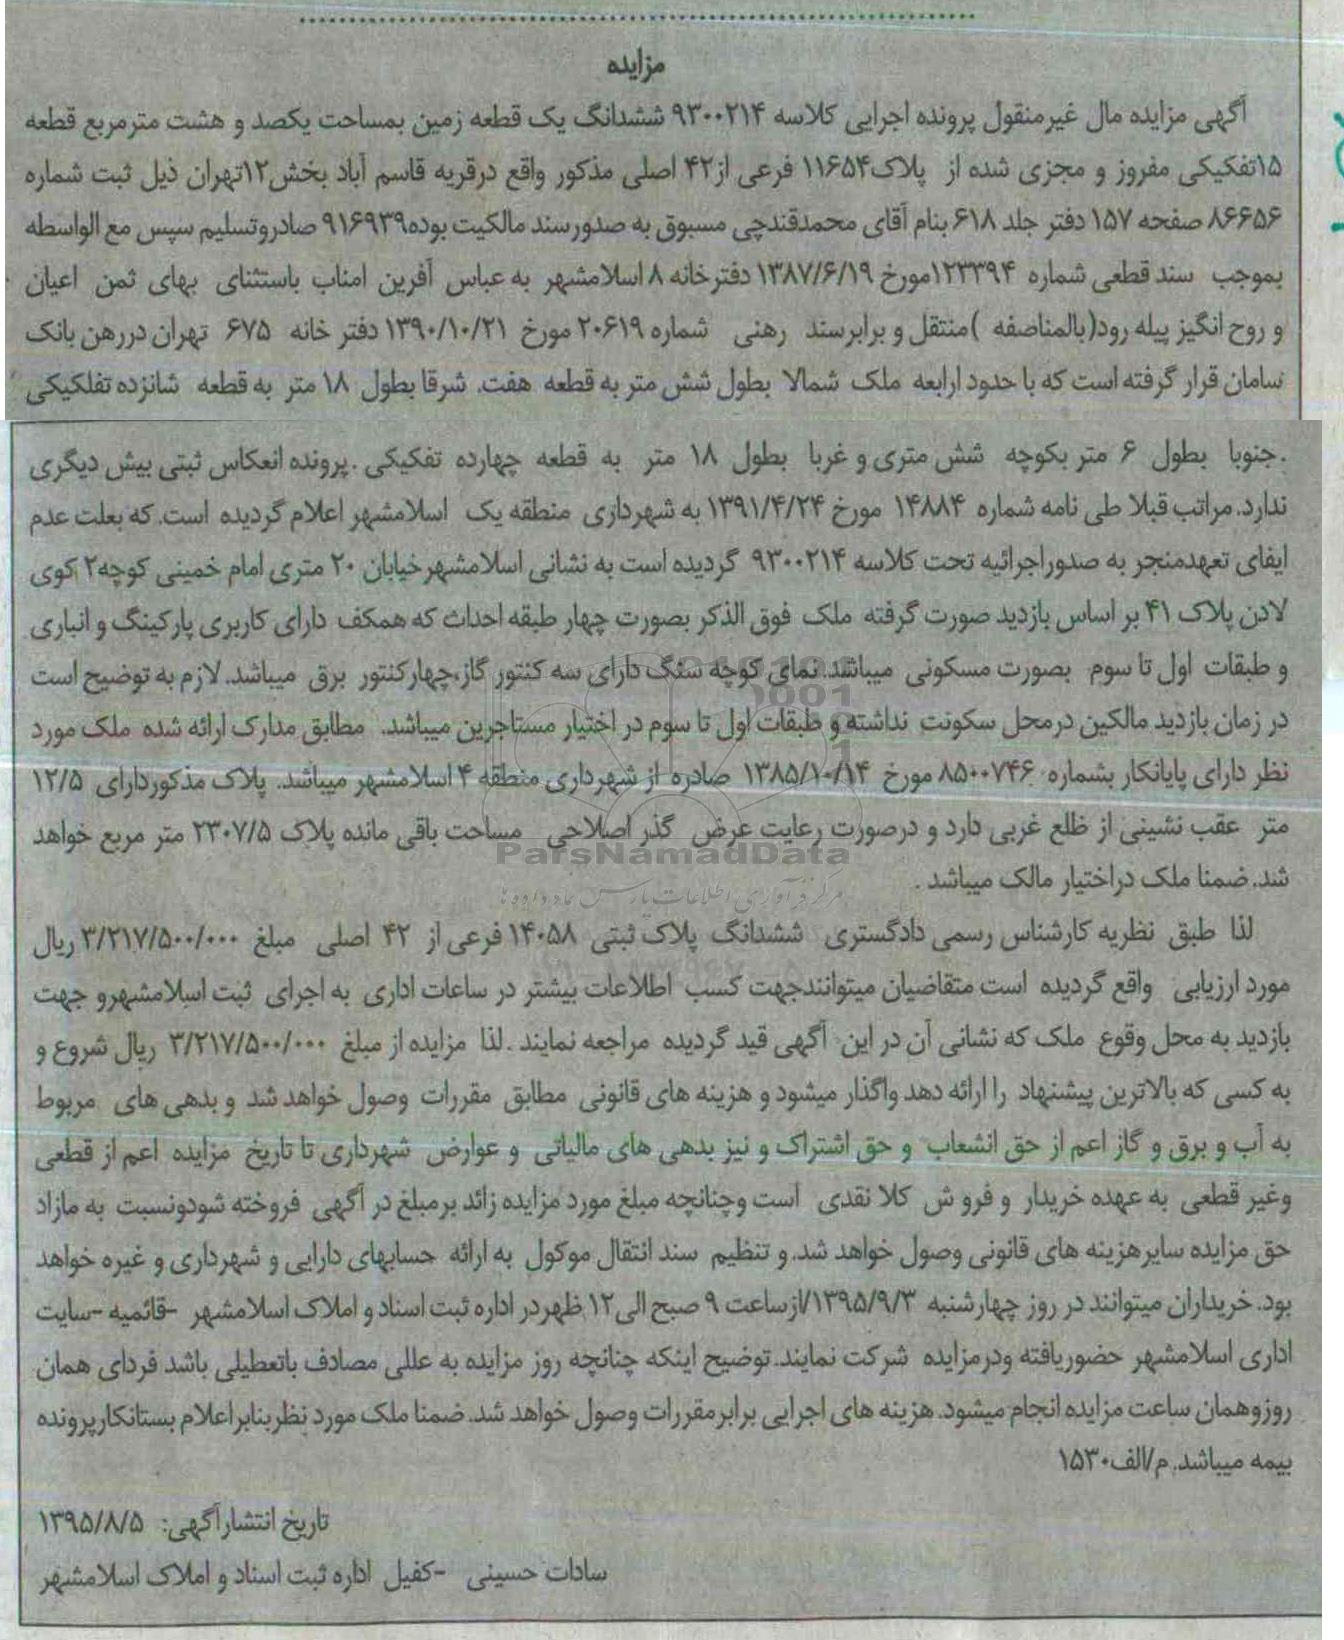 مزایده
آگهی مزایده مال غیرمنقول پرونده اجرایی کلاسه ۹۳۰۰۲۱۴ ششدانگ یک قطعه زمین بمساحت یکصد و هشت مترمربع قطعه
۱۵تفکیکی مفروز و مجزی شده از پلاک۱۱۶۵۴ فرعی از۴۲ اصلی مذکور واقع درقریه قاسم آباد بخش۱۲تهران ذیل ثبت شماره
۸۶۶۵۶ صفحه ۱۵۷ دفتر جلد ۶۱۸ بنام آقای محمدقندچی مسبوق به صدورسند مالکیت بوده۹۱۶۹۳۹ صادروتسلیم سپس مع الواسطه
بموجب سند قطعی شماره ۱۲۳۳۹۴مورخ ۱۳۸۷/۶/۱۹ دفترخانه ۸ اسلامشهر به عباس آفرین امناب باستثنای بهای ثمن اعیان
و روح انگیز پیله رود(بالمناصفه )منتقل و برابرسند رهنی شماره ۲۰۶۱۹ مورخ ۱۳۹۰/۱۰/۲۱ دفتر خانه ۶۷۵ تهران دررهن بانک
سامان قرار گرفته است که با حدود ارابعه ملک شمالا بطول شش متر به قطعه هفت. شرقا بطول ۱۸ متر به قطعه شانزده تفلکیکی
.جنوبا بطول ۶ متر بکوچه شش متری و غربا بطول ۱۸ متر به قطعه چهارده تفکیکی .پرونده انعکاس ثبتی بیش دیگری
ندارد. مراتب قبلا طی نامه شماره ۱۴۸۸۴ مورخ ۱۳۹۱/۴/۲۴ به شهرداری منطقه یک اسلامشهر اعلام گردیده است.که بعلت عدم
ایفای تعهدمنجر به صدوراجرائیه تحت کلاسه ۹۳۰۰۲۱۴ گردیده است به نشانی اسلامشهرخیابان ۲۰ متری امام خمینی کوچه۲ کوی
لادن پلاک ۴۱ بر اساس بازدید صورت گرفته ملک فوق الذکر بصورت چهار طبقه احداث که همکف دارای کاربری پارکینگ و انباری
و طبقات اول تا سوم بصورت مسکونی میباشد. نمای کوچه سنگ دارای سه کنتور گاز،چهارکنتور برق میباشد. لازم به توضیح است
در زمان بازدید مالکین درمحل سکونت نداشته و طبقات اول تا سوم در اختیار مستاجرین میباشد. مطابق مدارک ارائه شده ملک مورد
نظر دارای پایانکار بشماره ۸۵۰۰۷۴۶ مورخ ۱۳۸۵/۱۰/۱۴ صادره از شهرداری منطقه ۴ اسلامشهر میباشد. پلاک مذکوردارای ۱۲/۵
متر عقب نشینی از ظلع غربی دارد و درصورت رعایت عرض گذر اصلاحی مساحت باقی مانده پلاک ۲۳۰۷/۵ متر مربع خواهد
ParsNamadData
شد. ضمنا ملک دراختیار مالک میباشد .
مرکز فرآوری اطلاعات پارس نماد داده ها
لذا طبق نظریه کارشناس رسمی دادگستری ششدانگ پلاک ثبتی ۱۴۰۵۸ فرعی از ۴۲ اصلی مبلغ ۳/۲۱۷/۵۰۰/۰۰۰ ریال
مورد ارزیابی واقع گردیده است متقاضیان میتوانندجهت کسب اطلاعات بیشتر در ساعات اداری به اجرای ثبت اسلامشهرو جهت
بازدید به محل وقوع ملک که نشانی آن در این آگهی قید گردیده مراجعه نمایند .لذا مزایده از مبلغ ۳/۲۱۷/۵۰۰/۰۰۰ ریال شروع و
به کسی که بالاترین پیشنهاد را ارائه دهد واگذار میشود و هزینه های قانونی مطابق مقررات وصول خواهد شد و بدهی های مربوط
به آب و برق و گاز اعم از حق انشعاب و حق اشتراک و نیز بدهی های مالیاتی و عوارض شهرداری تا تاریخ مزایده اعم از قطعی
وغیر قطعی به عهده خریدار و فرو ش کلا نقدی است وچنانچه مبلغ مورد مزایده زائد برمبلغ در آگهی فروخته شودونسبت به مازاد
حق مزایده سایرهزینه های قانونی وصول خواهد شد. و تنظیم سند انتقال موکول به ارائه حسابهای دارایی و شهرداری و غیره خواهد
بود. خریداران میتوانند در روز چهارشنبه ۱۳۹۵/۹/۳/ازساعت ۹ صبح الی۱۲ ظهردر اداره ثبت اسناد و املاک اسلامشهر -قائمیه -سایت
اداری اسلامشهر حضوریافته ودرمزایده شرکت نمایند. توضیح اینکه چنانچه روز مزایده به عللی مصادف باتعطیلی باشد فردای همان
روزوهمان ساعت مزایده انجام میشود. هزینه های اجرایی برابرمقررات وصول خواهد شد. ضمنا ملک مورد نظربنابراعلام بستانکارپرونده
بیمه میباشد. م/الف۱۵۳۰
تاریخ انتشارآگهی: ۱۳۹۵/۸/۵
سادات حسینی -کفیل اداره ثبت اسناد و املاک اسلامشهر